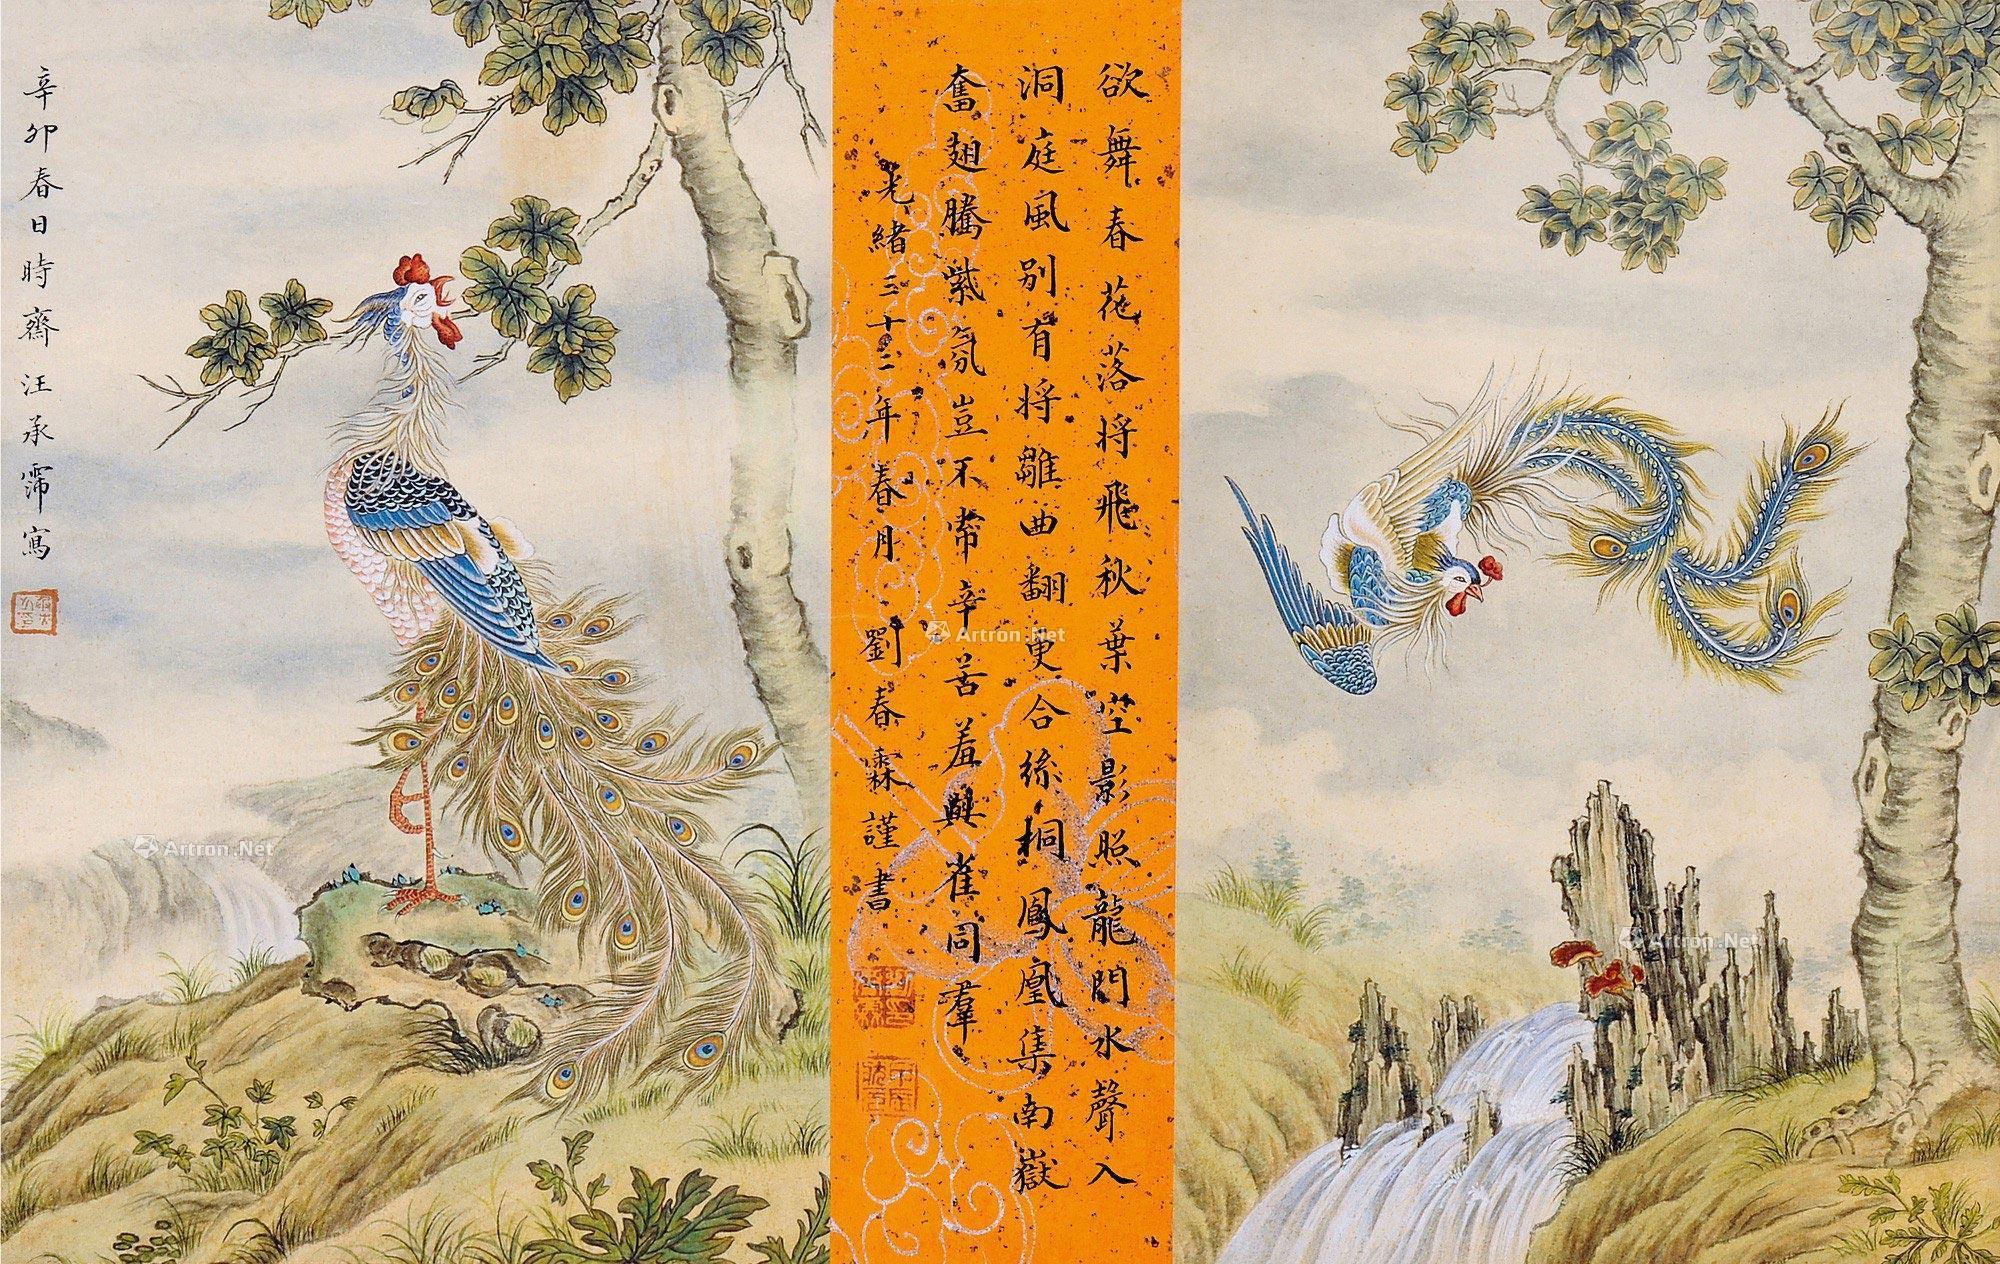 欲舞春花落将飛秋葉空影照龍門水聲入
洞庭風别有将雛曲翻更合絲桐鳳凰集南嶽
奮翅騰紫氛豈不常辛苦羞與雀同羣
光緒三十二年春月劉春霖謹書
辛卯春日時齋汪承霈寫
Artron.Net
Artron.Net
Artron.Net